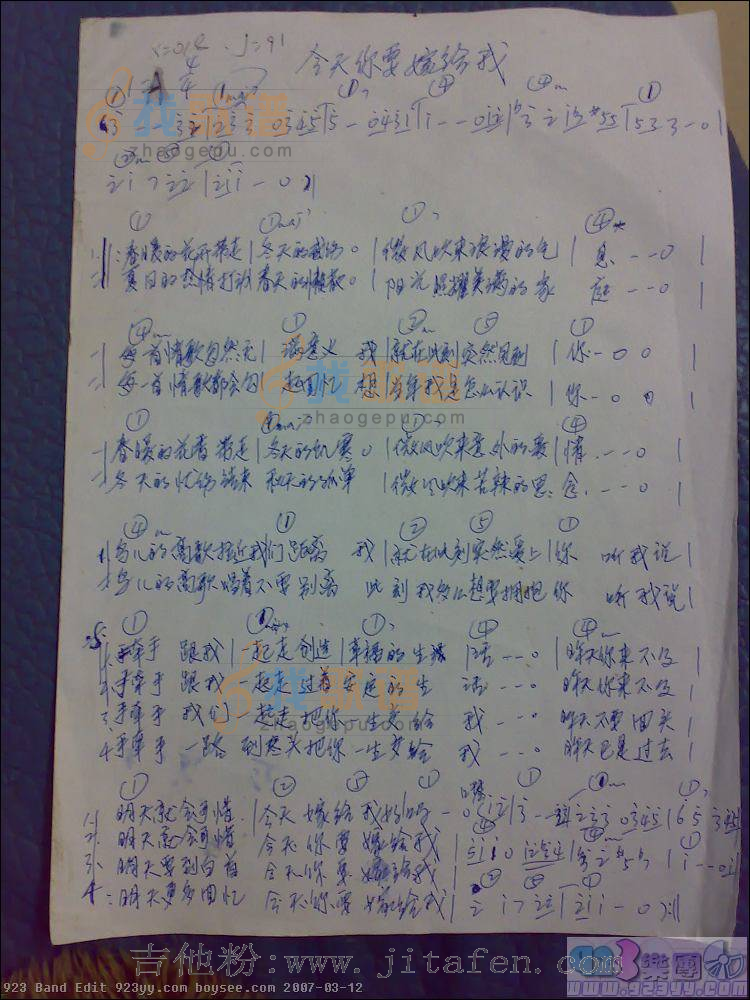 今天你要嫁给我
J=91
1=A 4/4
我歌谱
zhaogepu.com
春暖的花开带走|冬天的感伤 0|微风吹来浪漫的气|息 - - 0|
夏日的热情打动 春天的懒散 0|阳光照耀美满的家 庭 - - 0|
每一首情歌忽然充|满意义 我|就在此刻突然见到|你 - 0 0|
每一首情歌都会勾|起回忆 想|当年我是怎么认识|你 - 0 0|
春暖的花香 带走|冬天的饥寒 0|微风吹来意外的爱|情 - - 0|
冬天的忧伤结束 秋天的孤单|微风吹来苦辣的思 念 - - 0|
鸟儿的高歌拉近我们 距离 我|就在此刻突然爱上|你 听我说|
鸟儿的高歌 唱着不要别离 此刻 我多么想要拥抱 你 听我说|
1.手牵手 跟我|一起走 创造|幸福的生 活 - - 0|昨天你来不及|
2.手牵手 跟我 一起走 过着 安定的生 活 - - 0 昨天你来不及|
3.手牵手 我们 一起走 把你一生交给 我 - - 0 昨天不要回头|
4.手牵手 一路 到尽头 把你一生交给 我 - - 0 昨天已是过去|
1. 明天就会可惜|今天 嫁给我好吗
2. 明天就会可惜 今天你要嫁给我|
3. 明天要到白首 今天你要嫁给我|
4. 明天要多回忆 今天你要嫁给我|
吉他粉:www.jitafen.com
923 Band Edit 923yy.com boysee.com 2007-03-12
樂團
www.923yy.com